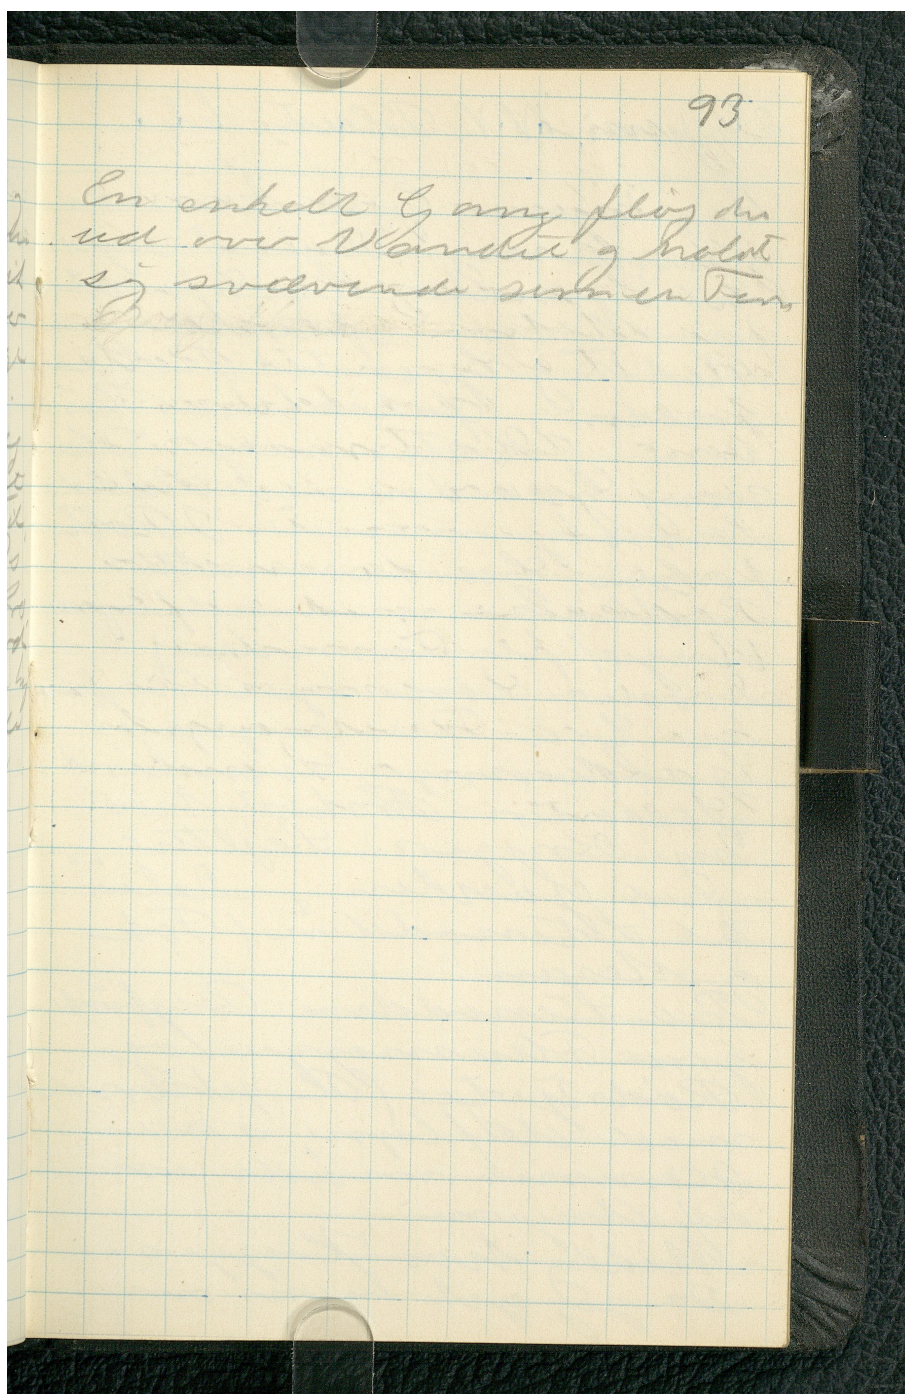 93
En enkelt Gang fløj den
ud over Vandet og holdt
sig svævende som en Tern